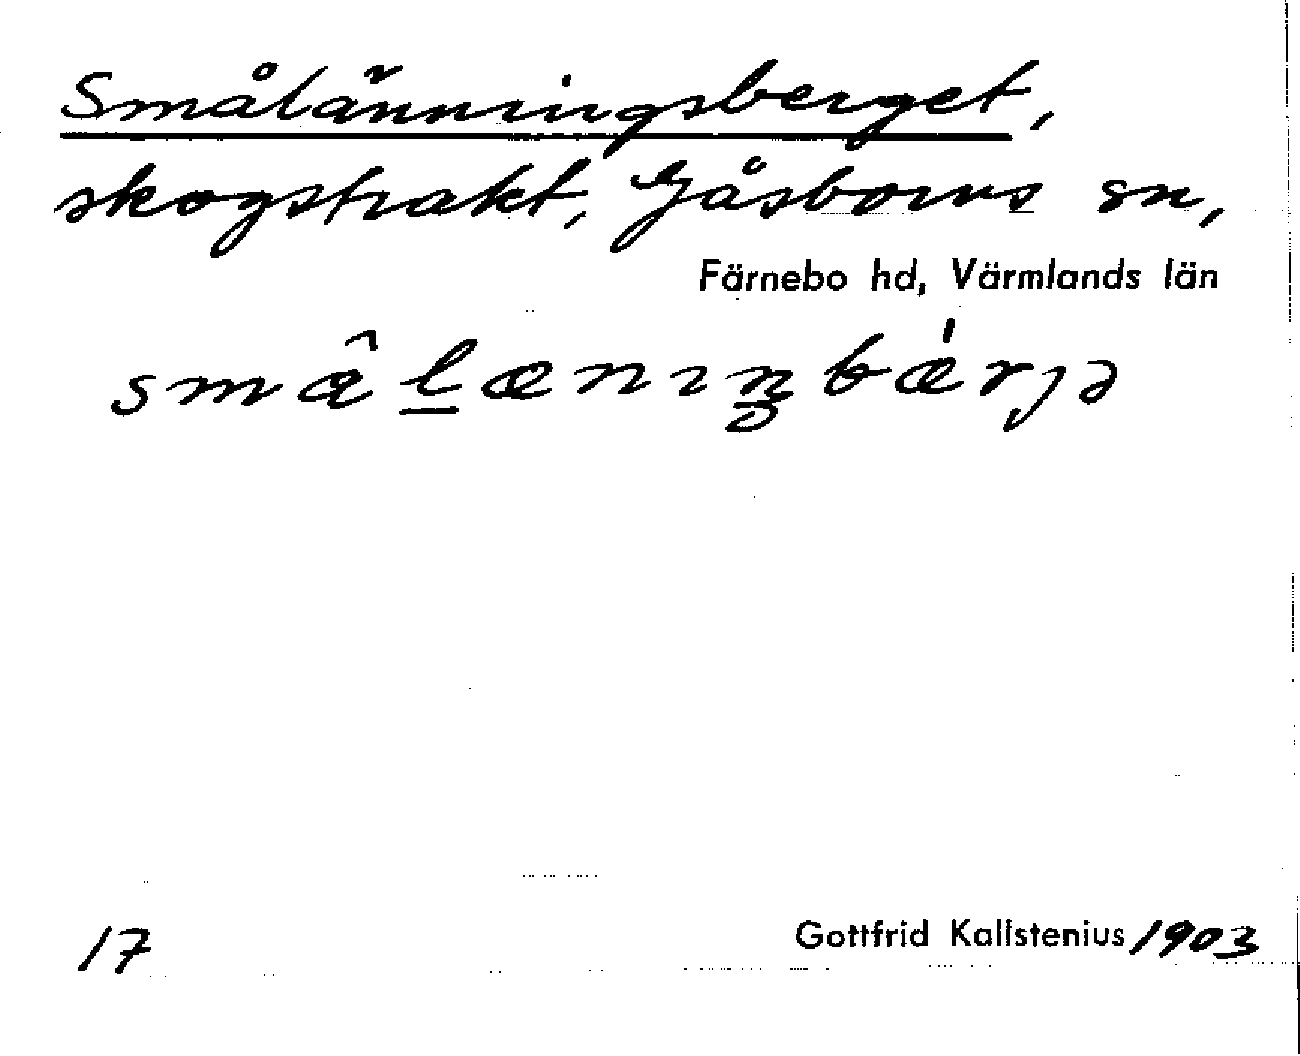 Smålänningsberget,
skogstrakt, Gåsborns sn,
Färnebo hd, Värmlands län
17
Gottfrid Kallstenius 1903